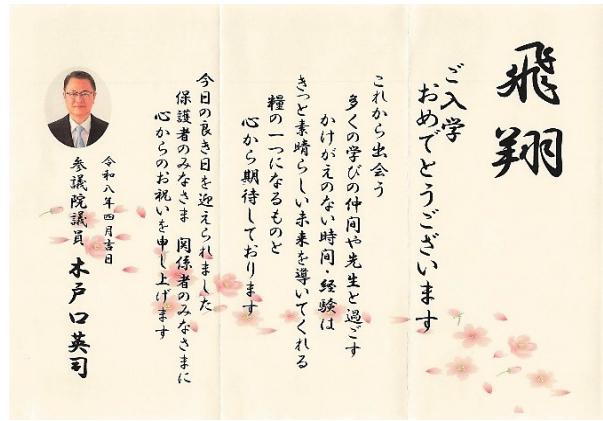 飛翔
ご入学
おめでとうございます
これから出会う
多くの学びの仲間や先生と過ごす
かけがえのない時間・経験は
きっと素晴らしい未来を導いてくれる
糧の一つになるものと
心から期待しております
今日の良き日を迎えられました
保護者のみなさま 関係者のみなさまに
心からのお祝いを申し上げます
令和八年四月吉日
参議院議員 木戸口英司